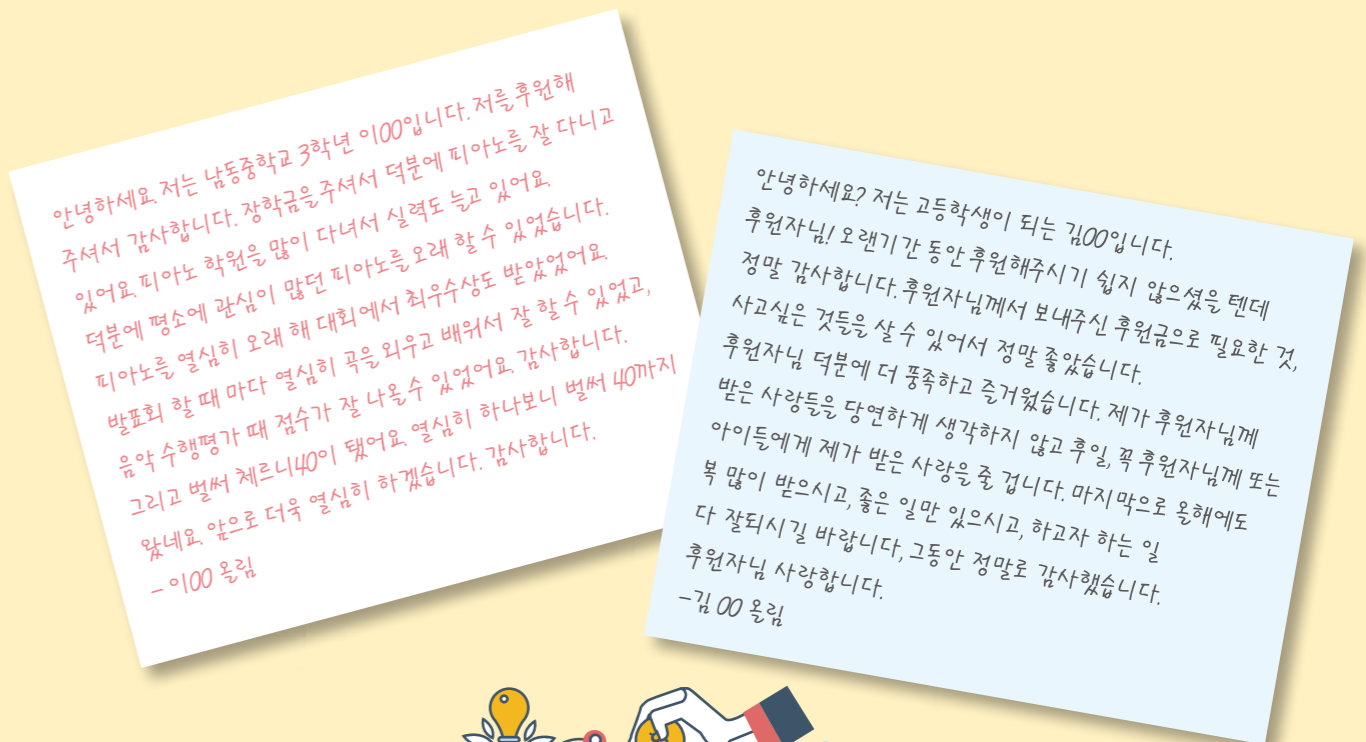 안녕하세요. 저는 남동중학교 3학년 이00입니다. 저를 후원해
주셔서 감사합니다. 장학금을 주셔서 덕분에 피아노를 잘 다니고
있어요. 피아노 학원을 많이 다녀서 실력도 늘고 있어요.
덕분에 평소에 관심이 많던 피아노를 오래 할 수 있었습니다.
피아노를 열심히 오래 해 대회에서 최우수상도 받았었어요.
발표회 할 때 마다 열심히 곡을 외우고 배워서 잘 할 수 있었고,
음악 수행평가 때 점수가 잘 나올수 있었어요. 감사합니다.
그리고 벌써 체르니40이 됐어요. 열심히 하나보니 벌써 40까지
왔네요. 앞으로 더욱 열심히 하겠습니다. 감사합니다.
- 이00 올림
안녕하세요? 저는 고등학생이 되는 김00입니다.
후원자님! 오랜기간 동안 후원해주시기 쉽지 않으셨을 텐데
정말 감사합니다. 후원자님께서 보내주신 후원금으로 필요한 것,
사고싶은 것들을 살 수 있어서 정말 좋았습니다.
후원자님 덕분에 더 풍족하고 즐거웠습니다. 제가 후원자님께
받은 사랑들을 당연하게 생각하지 않고 후일, 꼭 후원자님께 또는
아이들에게 제가 받은 사랑을 줄 겁니다. 마지막으로 올해에도
복 많이 받으시고, 좋은 일만 있으시고, 하고자 하는 일
다 잘되시길 바랍니다, 그동안 정말로 감사했습니다.
후원자님 사랑합니다.
-김 00 올림